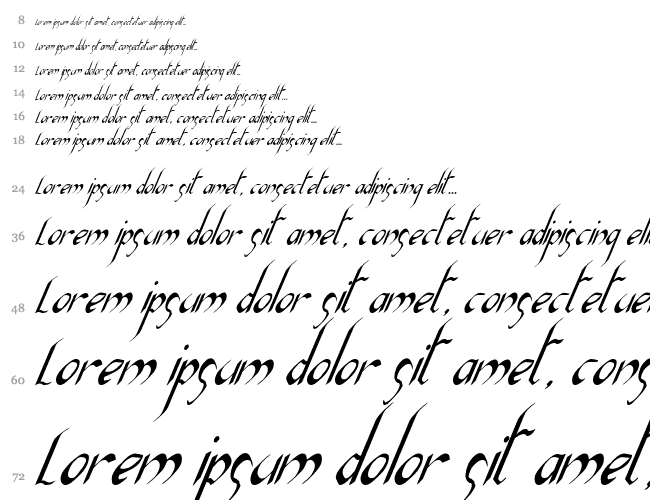 8 Lorem ipsum dolor sit amet, consectetuer adipiscing elit...
10 Lorem ipsum dolor sit amet, consectetuer adipiscing elit...
12 Lorem ipsum dolor sit amet, consectetuer adipiscing elit...
14 Lorem ipsum dolor sit amet, consectetuer adipiscing elit...
16 Lorem ipsum dolor sit amet, consectetuer adipiscing elit...
18 Lorem ipsum dolor sit amet, consectetuer adipiscing elit...
24 Lorem ipsum dolor sit amet, consectetuer adipiscing elit...
36 Lorem ipsum dolor sit amet, consectetuer adipiscing eli
48 Lorem ipsum dolor sit amet, consectetue
60 Lorem ipsum dolor sit amet, cons
72 Lorem ipsum dolor sit amet,